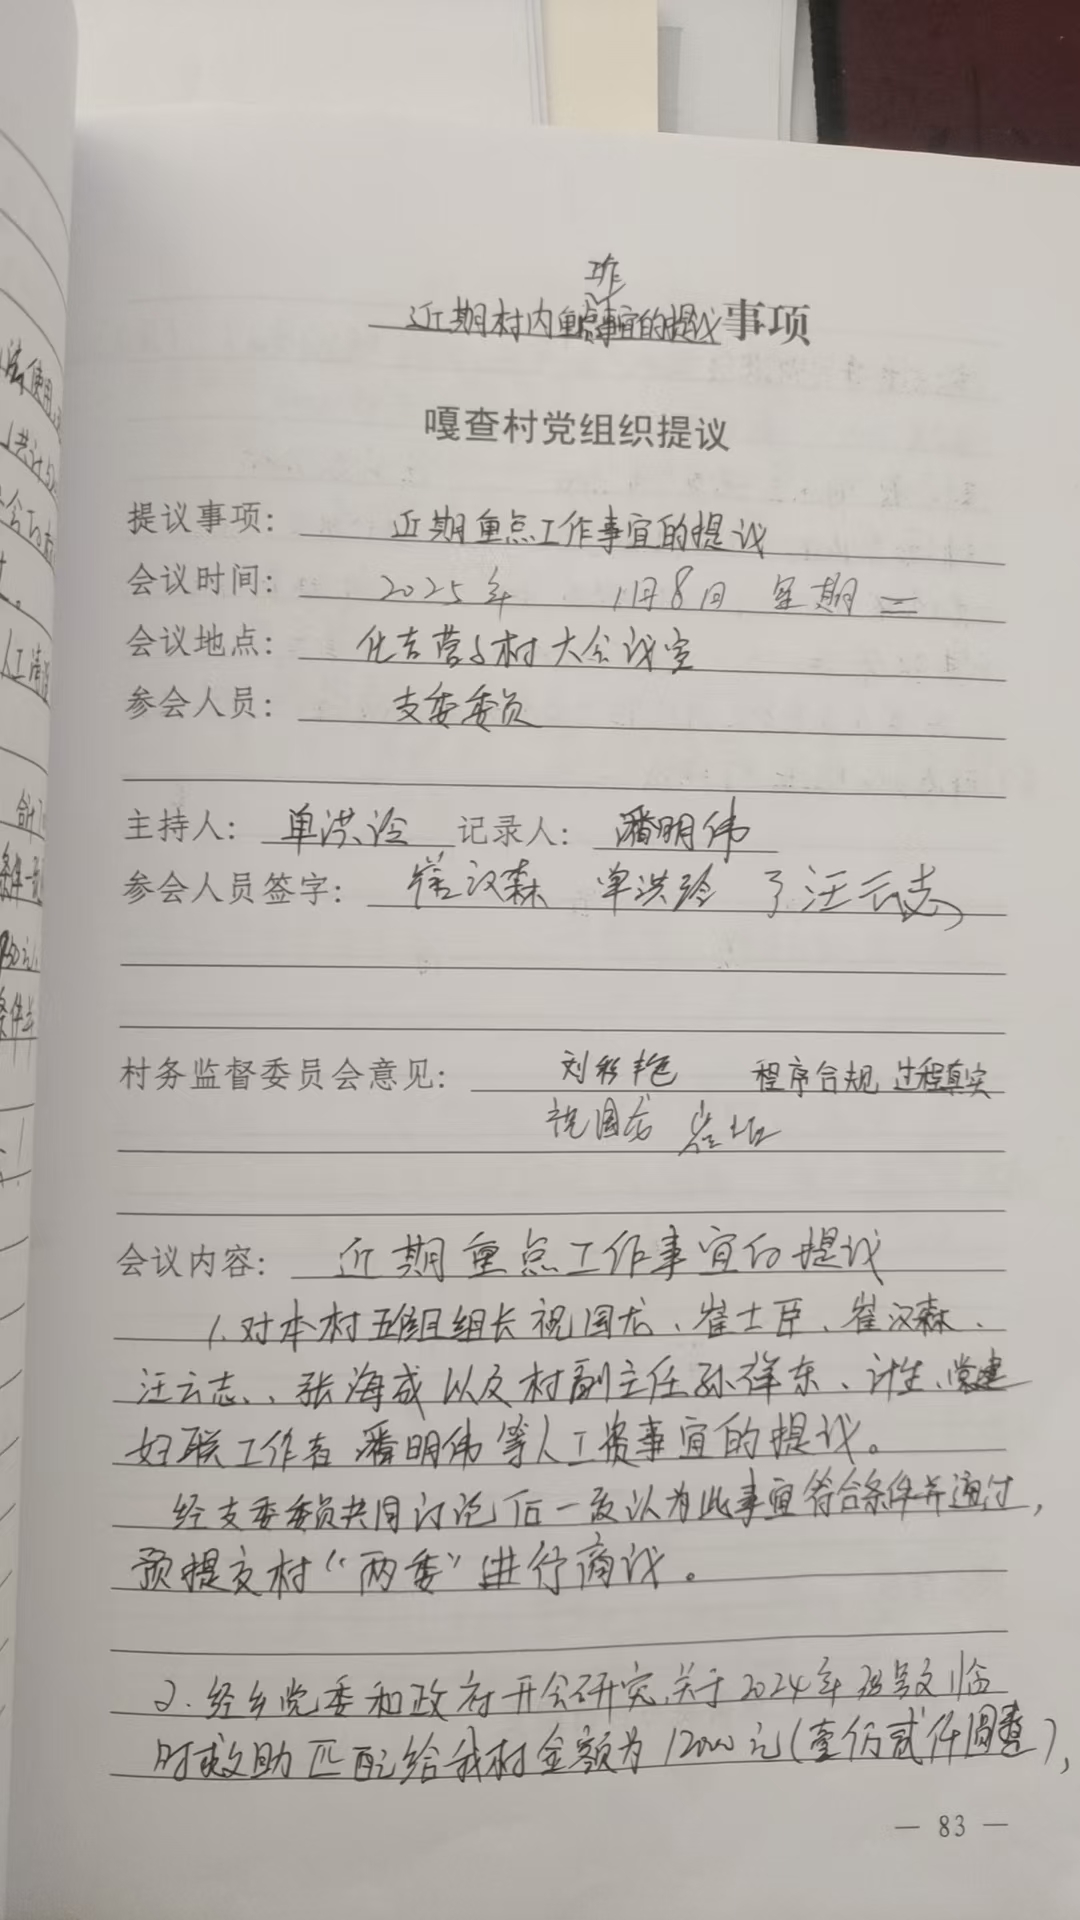 工作
近期村内重点事宜的提议事项
嘎查村党组织提议
提议事项: 近期重点工作事宜的提议
会议时间: 2025年 1月8日 星期三
会议地点: 化吉营子村大会议室
参会人员: 支委委员
主持人: 单洪玲 记录人: 潘明伟
参会人员签字: 崔汉森 单洪玲 汪云志
村务监督委员会意见: 刘彩艳 程序合规 过程真实
祝国龙
会议内容: 近期重点工作事宜的提议
1.对本村五组组长祝国龙、崔士臣、崔汉森、
汪云志、张海成以及村副主任孙祥东、计生、党建
妇联工作者潘明伟等人工资事宜的提议。
经支委委员共同讨论后一致认为此事宜符合条件并通过,
预提交村“两委”进行商议。
2.经乡党委和政府开会研究,关于2024年 临
时救助匹配给我村金额为12000元(壹仟贰仟圆整),
— 83 —